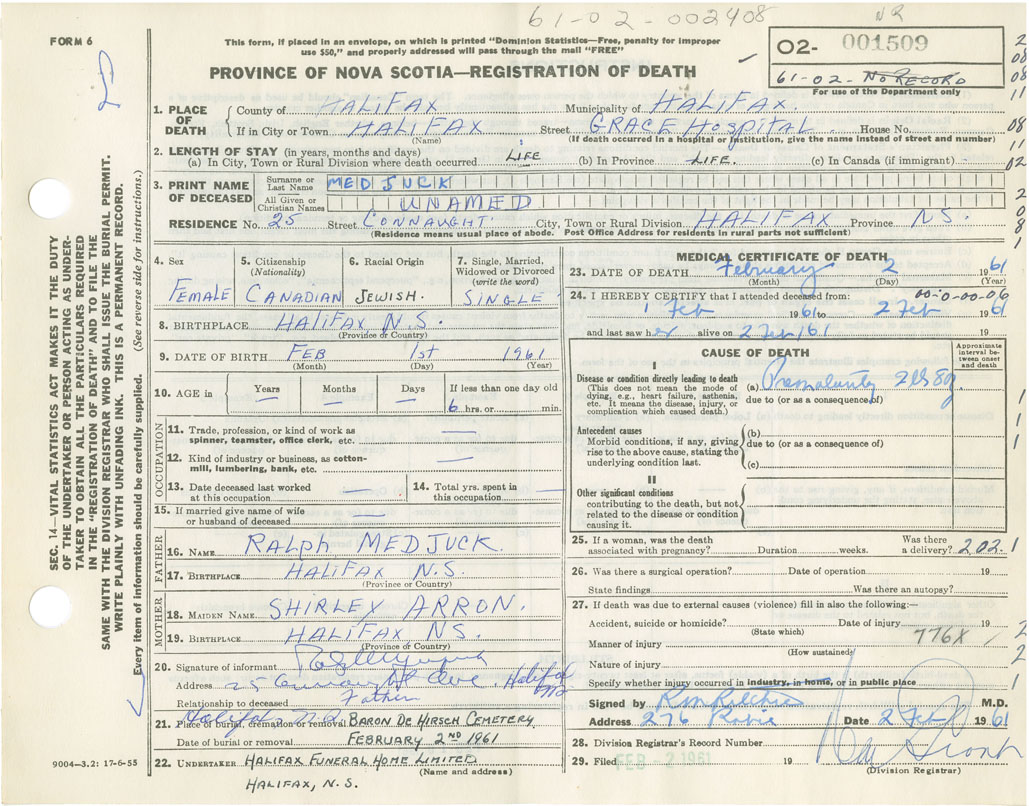 61-02-002408
NR
FORM 6
This form, if placed in an envelope, on which is printed "Dominion Statistics—Free, penalty for improper
use $50," and properly addressed will pass through the mail "FREE"
02- 001509
PROVINCE OF NOVA SCOTIA—REGISTRATION OF DEATH
61-02- NO RECORD
For use of the Department only
1. PLACE OF DEATH County of HALIFAX Municipality of HALIFAX.
If in City or Town HALIFAX Street GRACE Hospital House No.
(Name) (If death occurred in a hospital or institution, give the name instead of street and number)
2. LENGTH OF STAY (in years, months and days)
(a) In City, Town or Rural Division where death occurred LIFE (b) In Province LIFE. (c) In Canada (if immigrant) -
3. PRINT NAME OF DECEASED Surname or Last Name MEDJUCK
All Given or Christian Names UNAMED
RESIDENCE No. 25 Street CONNAUGHT. City, Town or Rural Division HALIFAX Province NS.
(Residence means usual place of abode. Post Office Address for residents in rural parts not sufficient)
4. Sex FEMALE
5. Citizenship (Nationality) CANADIAN
6. Racial Origin JEWISH.
7. Single, Married, Widowed or Divorced (write the word) SINGLE
8. BIRTHPLACE HALIFAX N.S.
(Province or Country)
9. DATE OF BIRTH FEB 1st 1961
(Month) (Day) (Year)
10. AGE in Years — Months — Days — If less than one day old
6 hrs. or min.
OCCUPATION
11. Trade, profession, or kind of work as
spinner, teamster, office clerk, etc. —
12. Kind of industry or business, as cotton-
mill, lumbering, bank, etc. —
13. Date deceased last worked
at this occupation —
14. Total yrs. spent in
this occupation —
15. If married give name of wife
or husband of deceased —
FATHER
16. NAME RALPH MEDJUCK.
17. BIRTHPLACE HALIFAX N.S.
(Province or Country)
MOTHER
18. MAIDEN NAME SHIRLEY ARRON.
19. BIRTHPLACE HALIFAX, NS.
(Province or Country)
20. Signature of informant
Address 25 Connaught Ave. Halifax
Relationship to deceased Father
21. Place of burial, cremation or removal BARON DE HIRSCH CEMETERY
Date of burial or removal FEBRUARY 2ND 1961
22. UNDERTAKER HALIFAX FUNERAL HOME LIMITED
(Name and address)
HALIFAX, N.S.
9004—3.2: 17-6-55
SEC. 14—VITAL STATISTICS ACT MAKES IT THE DUTY
OF THE UNDERTAKER OR PERSON ACTING AS UNDER-
TAKER TO OBTAIN ALL THE PARTICULARS REQUIRED
IN THE "REGISTRATION OF DEATH" AND TO FILE THE
SAME WITH THE DIVISION REGISTRAR WHO SHALL ISSUE THE BURIAL PERMIT.
WRITE PLAINLY WITH UNFADING INK. THIS IS A PERMANENT RECORD.
Every item of information should be carefully supplied. (See reverse side for instructions.)
MEDICAL CERTIFICATE OF DEATH
23. DATE OF DEATH February 2 1961
(Month) (Day) (Year)
24. I HEREBY CERTIFY that I attended deceased from: 00-0-00-06
1 Feb 1961 to 2 Feb 1961
and last saw her alive on 2 Feb 61 19
CAUSE OF DEATH
Approximate interval between onset and death
I
Disease or condition directly leading to death
(This does not mean the mode of
dying, e.g., heart failure, asthenia,
etc. It means the disease, injury, or
complication which caused death.)
(a) Prematurity
due to (or as a consequence of)
Antecedent causes
Morbid conditions, if any, giving
rise to the above cause, stating the
underlying condition last.
(b)
due to (or as a consequence of)
(c)
II
Other significant conditions
contributing to the death, but not
related to the disease or condition
causing it.
25. If a woman, was the death
associated with pregnancy? Duration weeks. Was there
a delivery? 202.1
26. Was there a surgical operation? Date of operation 19
State findings Was there an autopsy?
27. If death was due to external causes (violence) fill in also the following:—
Accident, suicide or homicide? Date of injury 19
(State which)
776X
Manner of injury
(How sustained)
Nature of injury
Specify whether injury occurred in industry, in home, or in public place
Signed by M.D.
Address 276 Robie Date 2 Feb 1961
28. Division Registrar's Record Number
29. Filed FEB -2 1961 19
(Division Registrar)